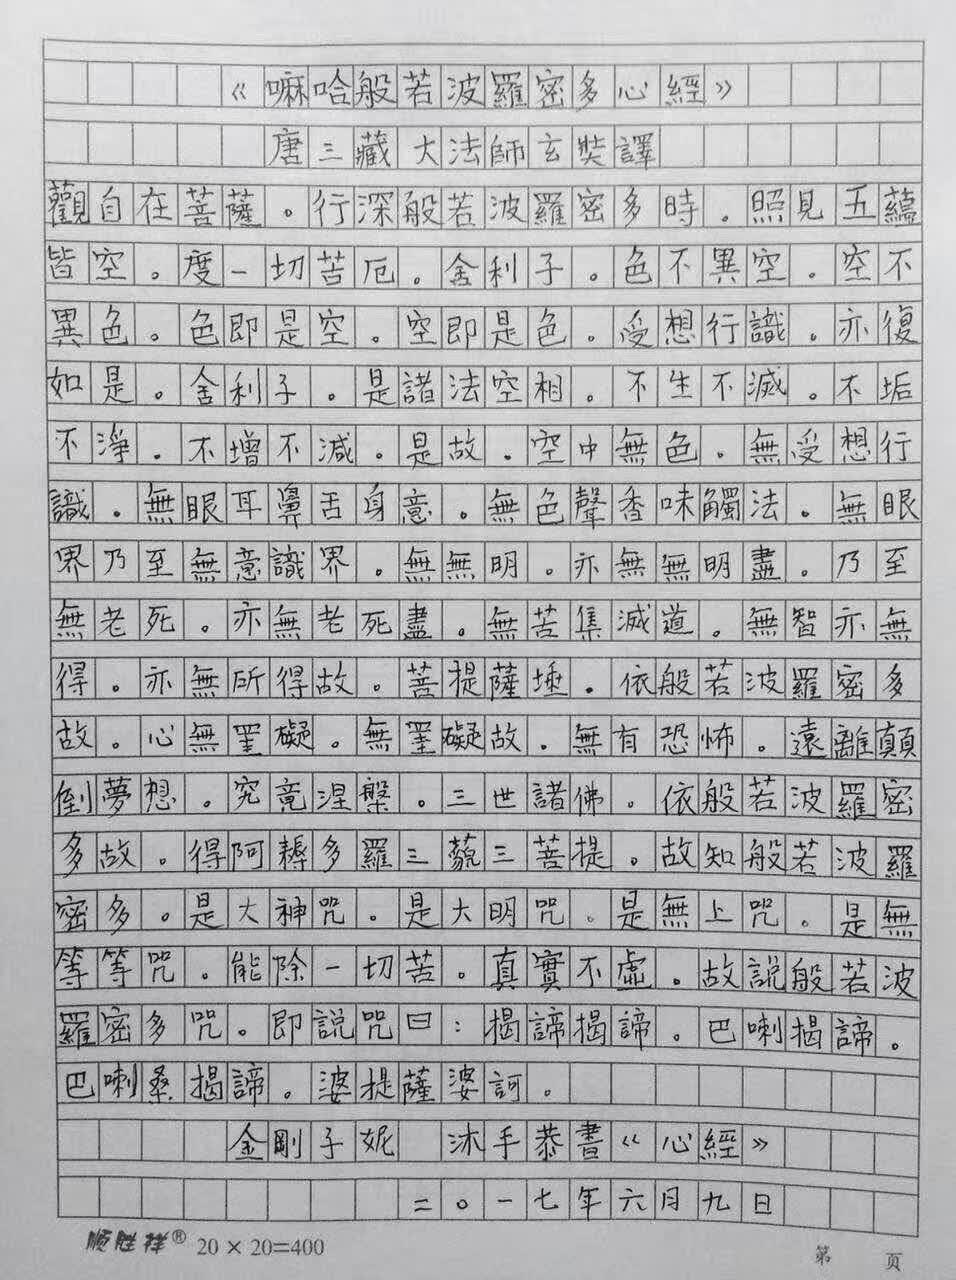 《嘛哈般若波羅密多心經》
唐三藏大法師玄奘譯
觀自在菩薩。行深般若波羅密多時。照見五蘊
皆空。度一切苦厄。舍利子。色不異空。空不
異色。色即是空。空即是色。受想行識。亦復
如是。舍利子。是諸法空相。不生不滅。不垢
不淨。不增不減。是故。空中無色。無受想行
識。無眼耳鼻舌身意。無色聲香味觸法。無眼
界乃至無意識界。無無明。亦無無明盡。乃至
無老死。亦無老死盡。無苦集滅道。無智亦無
得。亦無所得故。菩提薩埵。依般若波羅密多
故。心無罣礙。無罣礙故。無有恐怖。遠離顛
倒夢想。究竟涅槃。三世諸佛。依般若波羅密
多故。得阿耨多羅三藐三菩提。故知般若波羅
密多。是大神咒。是大明咒。是無上咒。是無
等等咒。能除一切苦。真實不虛。故說般若波
羅密多咒。即說咒曰：揭諦揭諦。巴喇揭諦。
巴喇桑揭諦。婆提薩婆訶。
金剛子妮 沐手恭書《心經》
二〇一七年六月九日
顺胜祥® 20×20=400 第 页